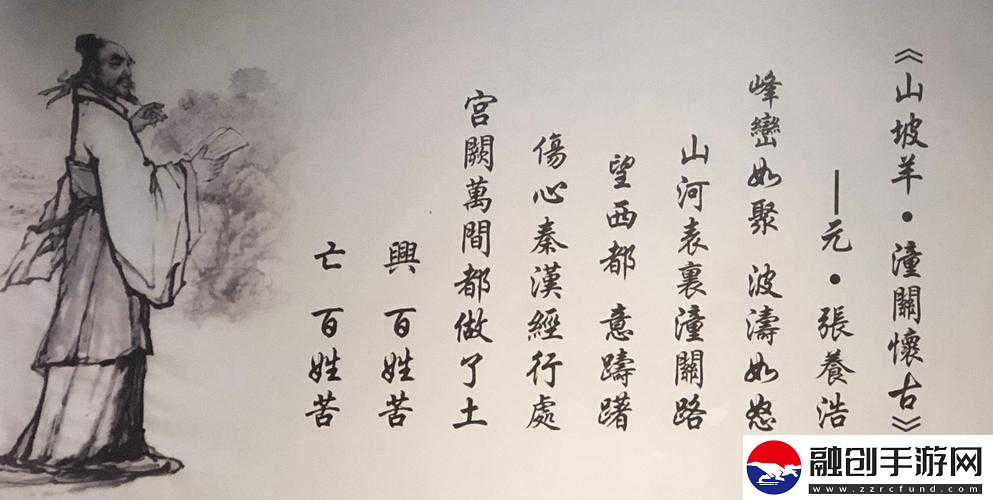 《山坡羊•潼關懷古》
——元•張養浩
峰巒如聚 波濤如怒
山河表裏潼關路
望西都 意躊躇
傷心秦漢經行處
宮闕萬間都做了土
興 百姓苦
亡 百姓苦
融创手游网
www.zzrcfund.com